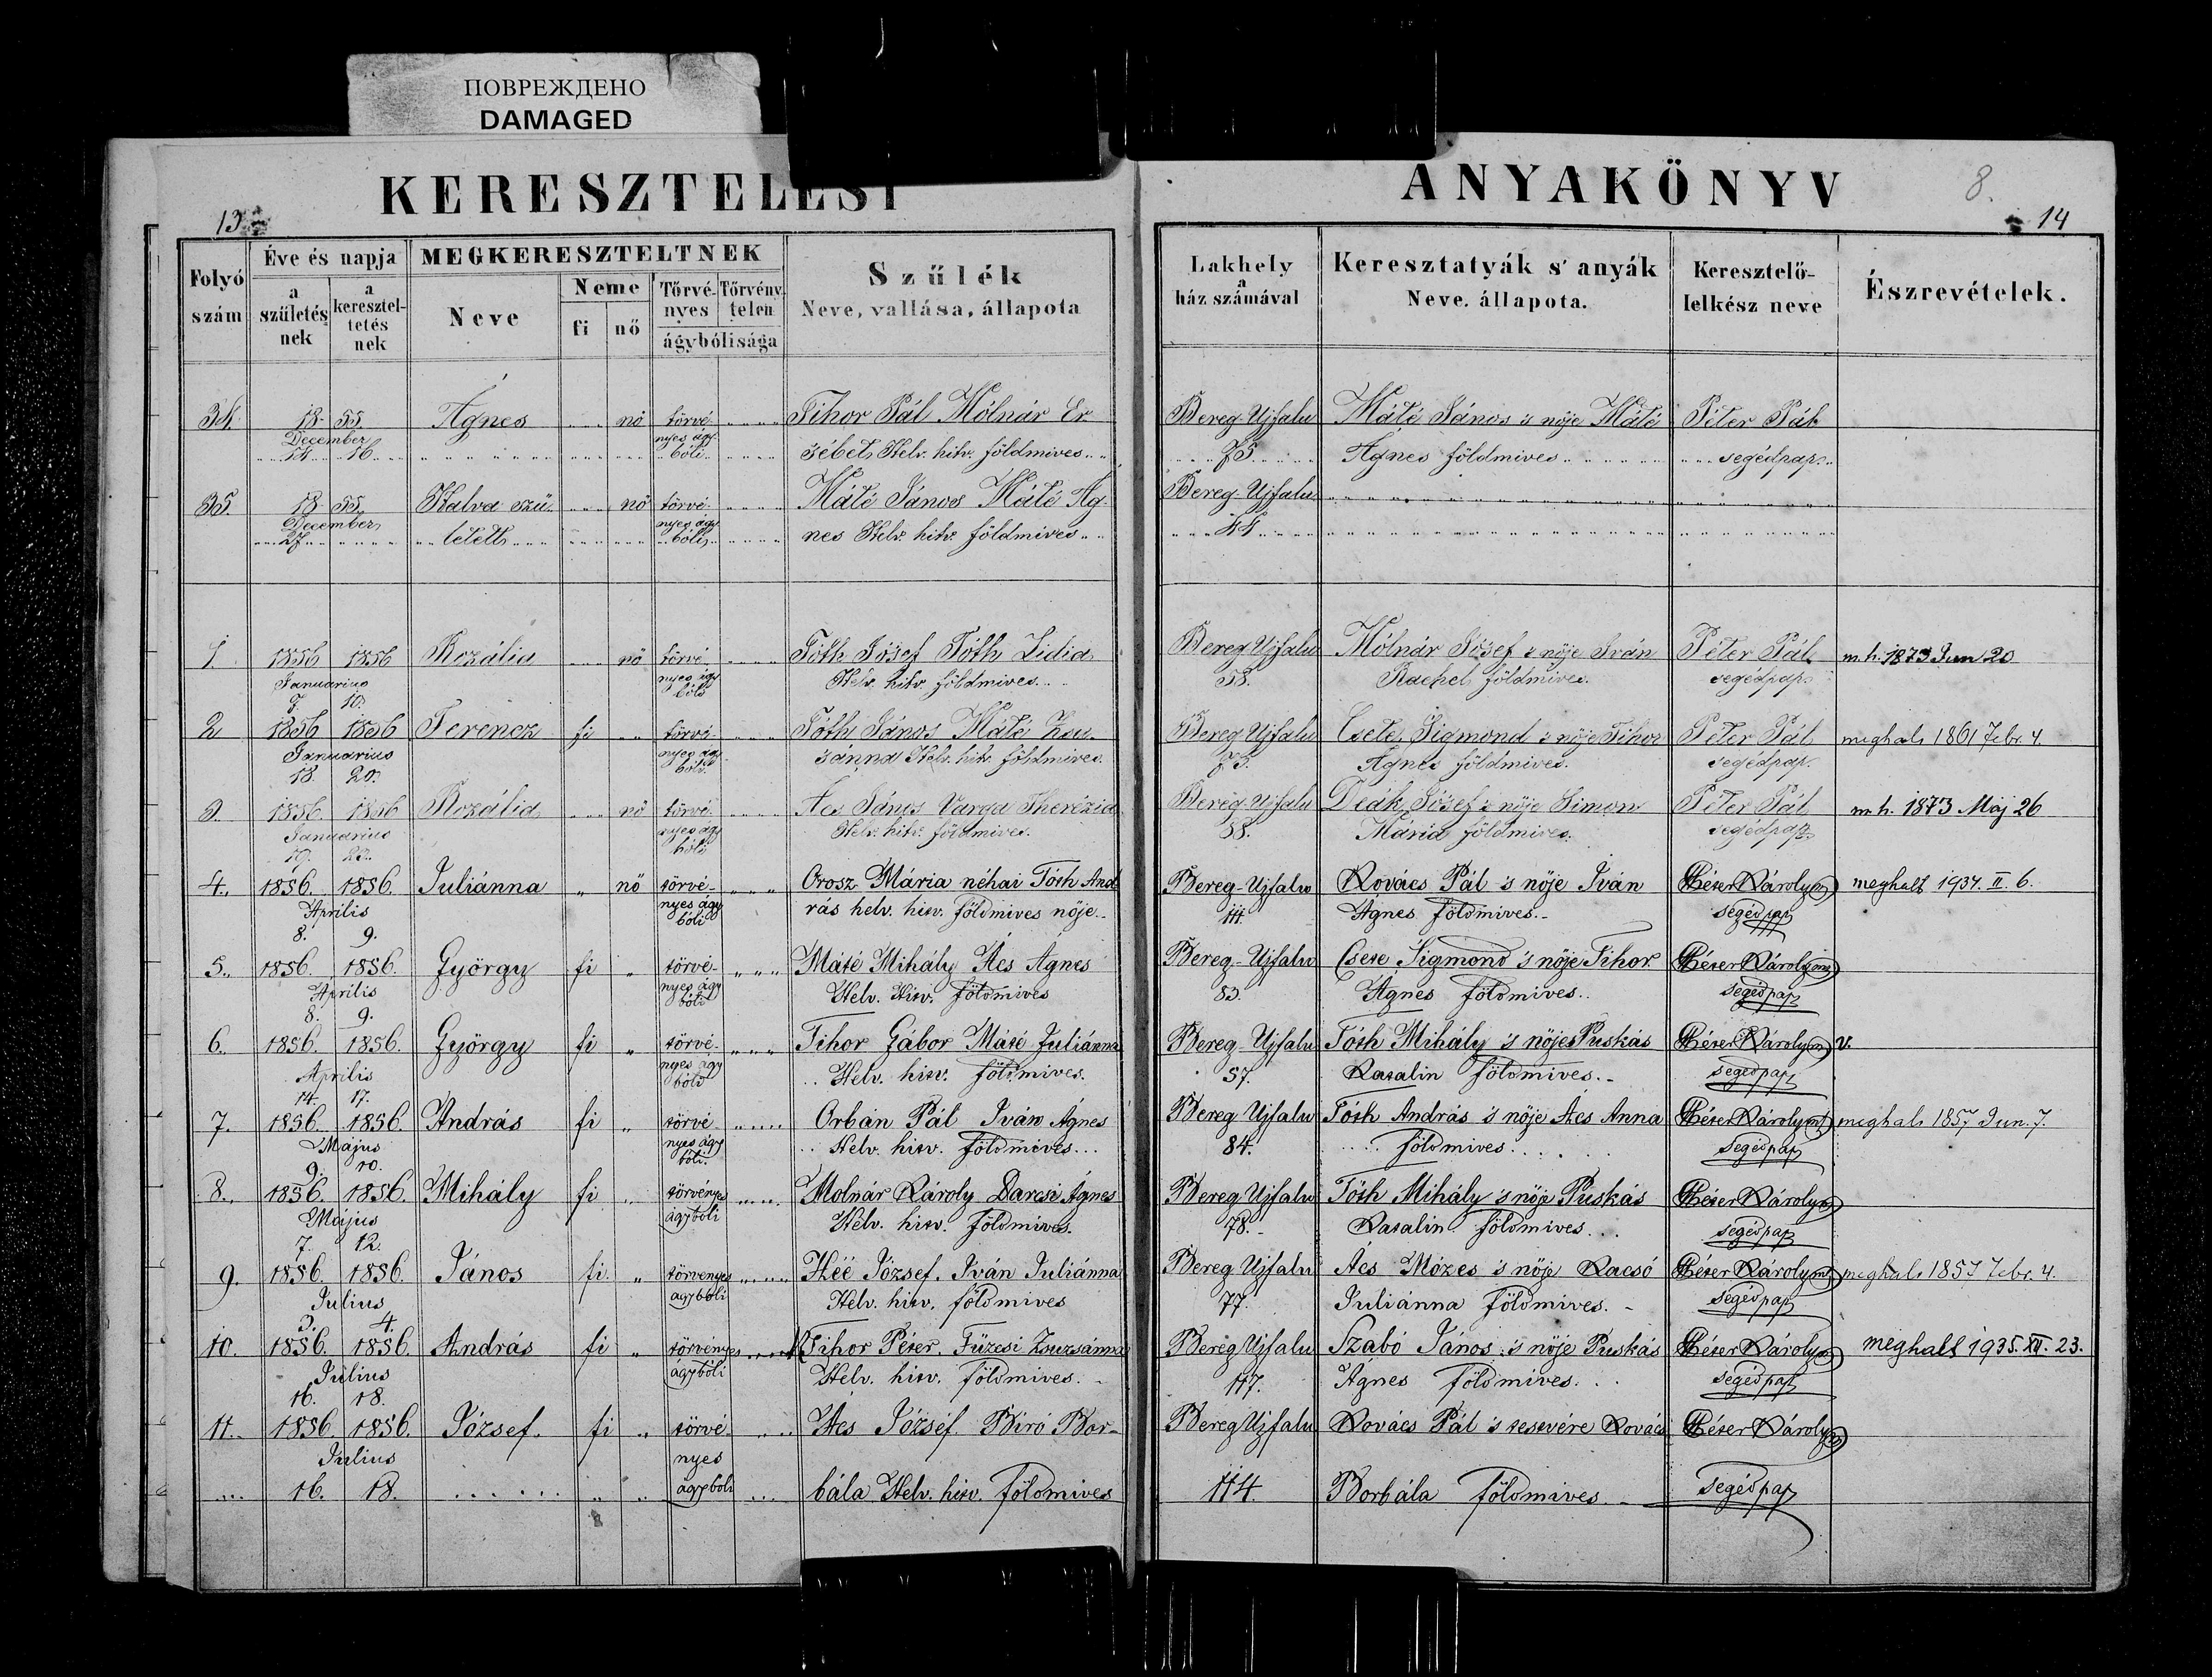 ПОВРЕЖДЕНО
DAMAGED
KERESZTELÉSI
ANYAKÖNYV
8.
13
14
Folyó szám
Éve és napja
a születés nek
a keresztel- tetés nek
MEGKERESZTELTNEK
Neve
Neme
fi
nő
Törvé- nyes
Törvény telen
ágybólisága
Szűlék
Neve, vallása, állapota
Lakhely
a
ház számával
Keresztatyák s' anyák
Neve, állapota.
Keresztelő-
lelkész neve
Észrevételek.
34. 18 55. Ágnes nő törvé- Tihor Pál Mólnár Er- Bereg-Ujfalu Máté János 's nője Máté Péter Pál
December nyes ágy-
14 16 bóli sébet Helv. hitv. földmives 75 Ágnes földmives segédpap.
35. 18 55. Halva szü- nő törvé- Máté János Máté Ág- Bereg-Ujfalu
December nyes ágy
27 letett bóli nes Helv. hitv. földmives 44
1. 1856 1856 Rozália nő törvé- Tóth Jósef Tóth Lidia Bereg Ujfalu Mólnár Jósef 's nője Iván Péter Pál m.h. 1873 Jun 20
Januarius nyes ágy Helv. hitv. földmives. 58. Rachel földmives. segédpap.
7. 10. bóli
2 1856 1856 Ferencz fi törvé- Tóth János Máté Zsu- Bereg Ujfalu Csete Sigmond 's nője Tihor Péter Pál meghalt 1861 Febr. 4.
Januarius nyes ágy sánna Helv. hitv. földmives. 75. Ágnes földmives. segédpap.
18. 20. bóli
3. 1856. 1856 Rozália nő törvé- Ács János Varga Therézia Bereg Ujfalu Deák Jósef 's nője Simon Péter Pál m.h. 1873 Máj 26
Januarius nyes ágy Helv. hitv. földmives. 88. Mária földmives. segédpap.
19. bóli
4. 1856. 1856. Juliánna nő törvé- Orosz Mária néhai Tóth And Bereg-Ujfalu Kovács Pál 's nője Iván Péter Károly meghalt 1934. II. 6.
Április nyes ágy rás helv. hitv. földmives nője. 111. Ágnes földmives. segédpap
8. 9. bóli
5. 1856. 1856. György fi törvé- Máté Mihály Ács Ágnes Bereg-Ujfalu Csete Sigmond 's nője Tihor Péter Károly
Április nyes ágy Helv. Hitv. földmives 83. Ágnes földmives. segédpap
8. 9. bóli
6. 1856. 1856. György fi törvé- Tihor Gábor Máté Juliánna Bereg-Ujfalu Tóth Mihály 's nője Puskás Péter Károly v.
Április nyes ágy Helv. hitv. földmives. 57. Katalin földmives. segédpap
14. 17. bóli
7. 1856. 1856. András fi törvé- Orbán Pál Iván Ágnes Bereg Ujfalu Tóth András 's nője Ács Anna Péter Károly meghalt 1857 Jun. 7.
Május nyes ágy Helv. hitv. földmives 84. földmives. segédpap
9. 10. bóli.
8. 1856. 1856. Mihály fi törvényes Molnár Károly Darcsi Ágnes Bereg Ujfalu Tóth Mihály 's nője Puskás Péter Károly
Május ágybóli Helv. hitv. földmives. 78. Katalin földmives. segédpap
7. 12.
9. 1856. 1856. János fi törvényes Héé József. Iván Juliánna Bereg Ujfalu Ács Mózes 's nője Kacsó Péter Károly meghalt 1857 Febr. 4.
Julius ágybóli Helv. hitv. földmives 77. Juliánna földmives. segédpap
3. 4.
10. 1856. 1856. András fi törvényes Tihor Péter. Füzesi Zsuzsánna Bereg Ujfalu Szabó János 's nője Puskás Péter Károly meghalt 1935. XII. 23.
Julius ágybóli Helv. hitv. földmives. 117. Ágnes földmives. segédpap
16. 18.
11. 1856. 1856. József. fi törvé- Ács József. Biró Bor- Bereg Ujfalu Kovács Pál 's testvére Kovács Péter Károly
Julius nyes
16. 18. ágybóli bála Helv. hitv. földmives 114. Borbála földmives. segédpap